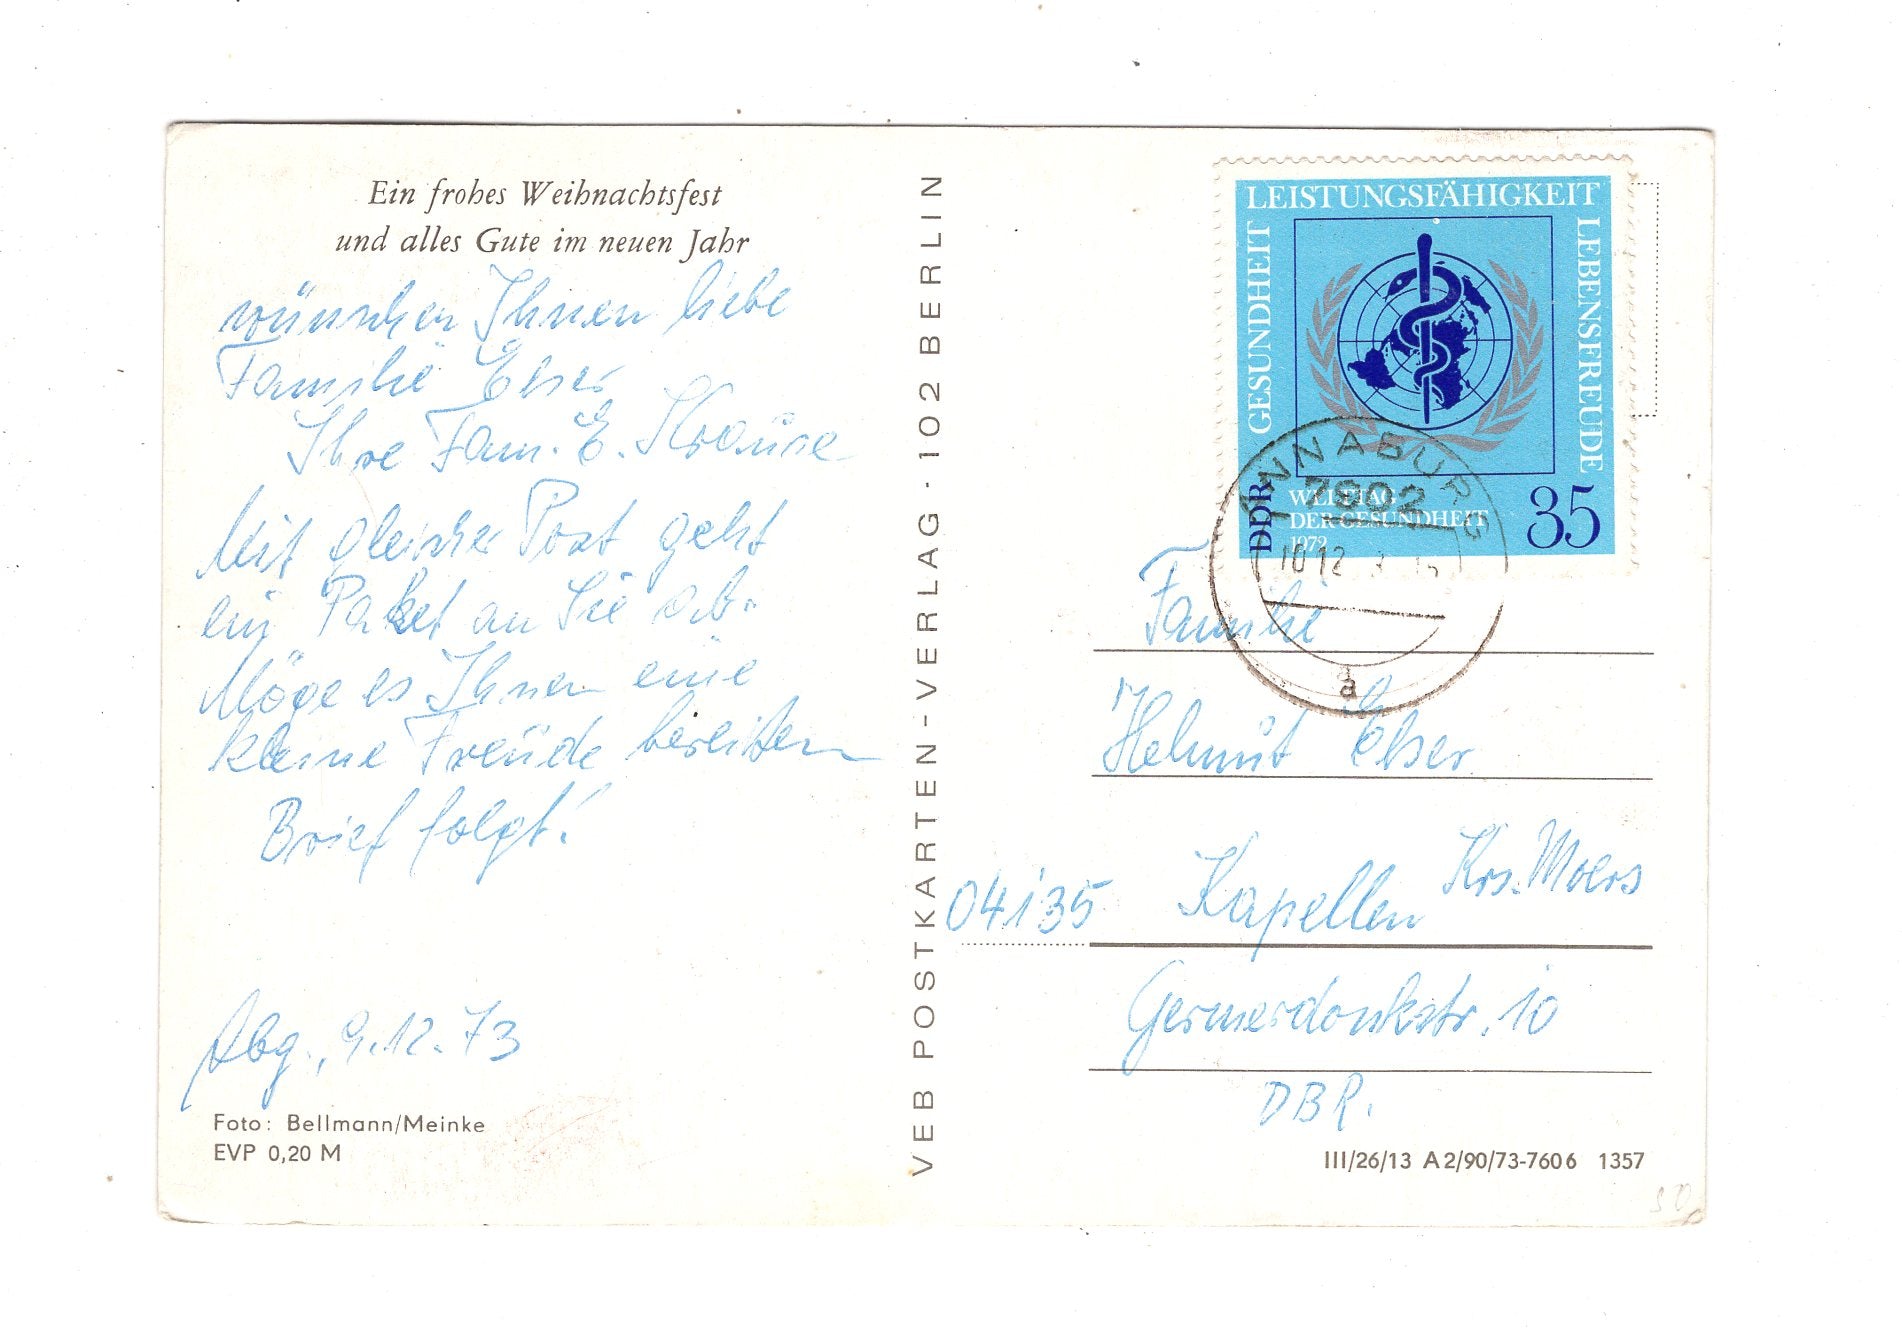 Ein frohes Weihnachtsfest
und alles Gute im neuen Jahr
wünschen Ihnen liebe
Familie Elser
Ihre Fam. E. Krause
Mit gleicher Post geht
ein Paket an Sie ab.
Möge es Ihnen eine
kleine Freude bereiten
Brief folgt!
Abg., 9.12.73
Foto: Bellmann/Meinke
EVP 0,20 M
VEB POSTKARTEN-VERLAG · 102 BERLIN
LEISTUNGSFÄHIGKEIT
GESUNDHEIT
LEBENSFREUDE
DDR
WELTTAG
DER GESUNDHEIT
1972
35
ANNABURG
7802
10.12
a
Familie
Helmut Elser
04135 Kapellen Krs. Moers
Germerdonkstr. 10
DBR.
III/26/13 A2/90/73-7606 1357